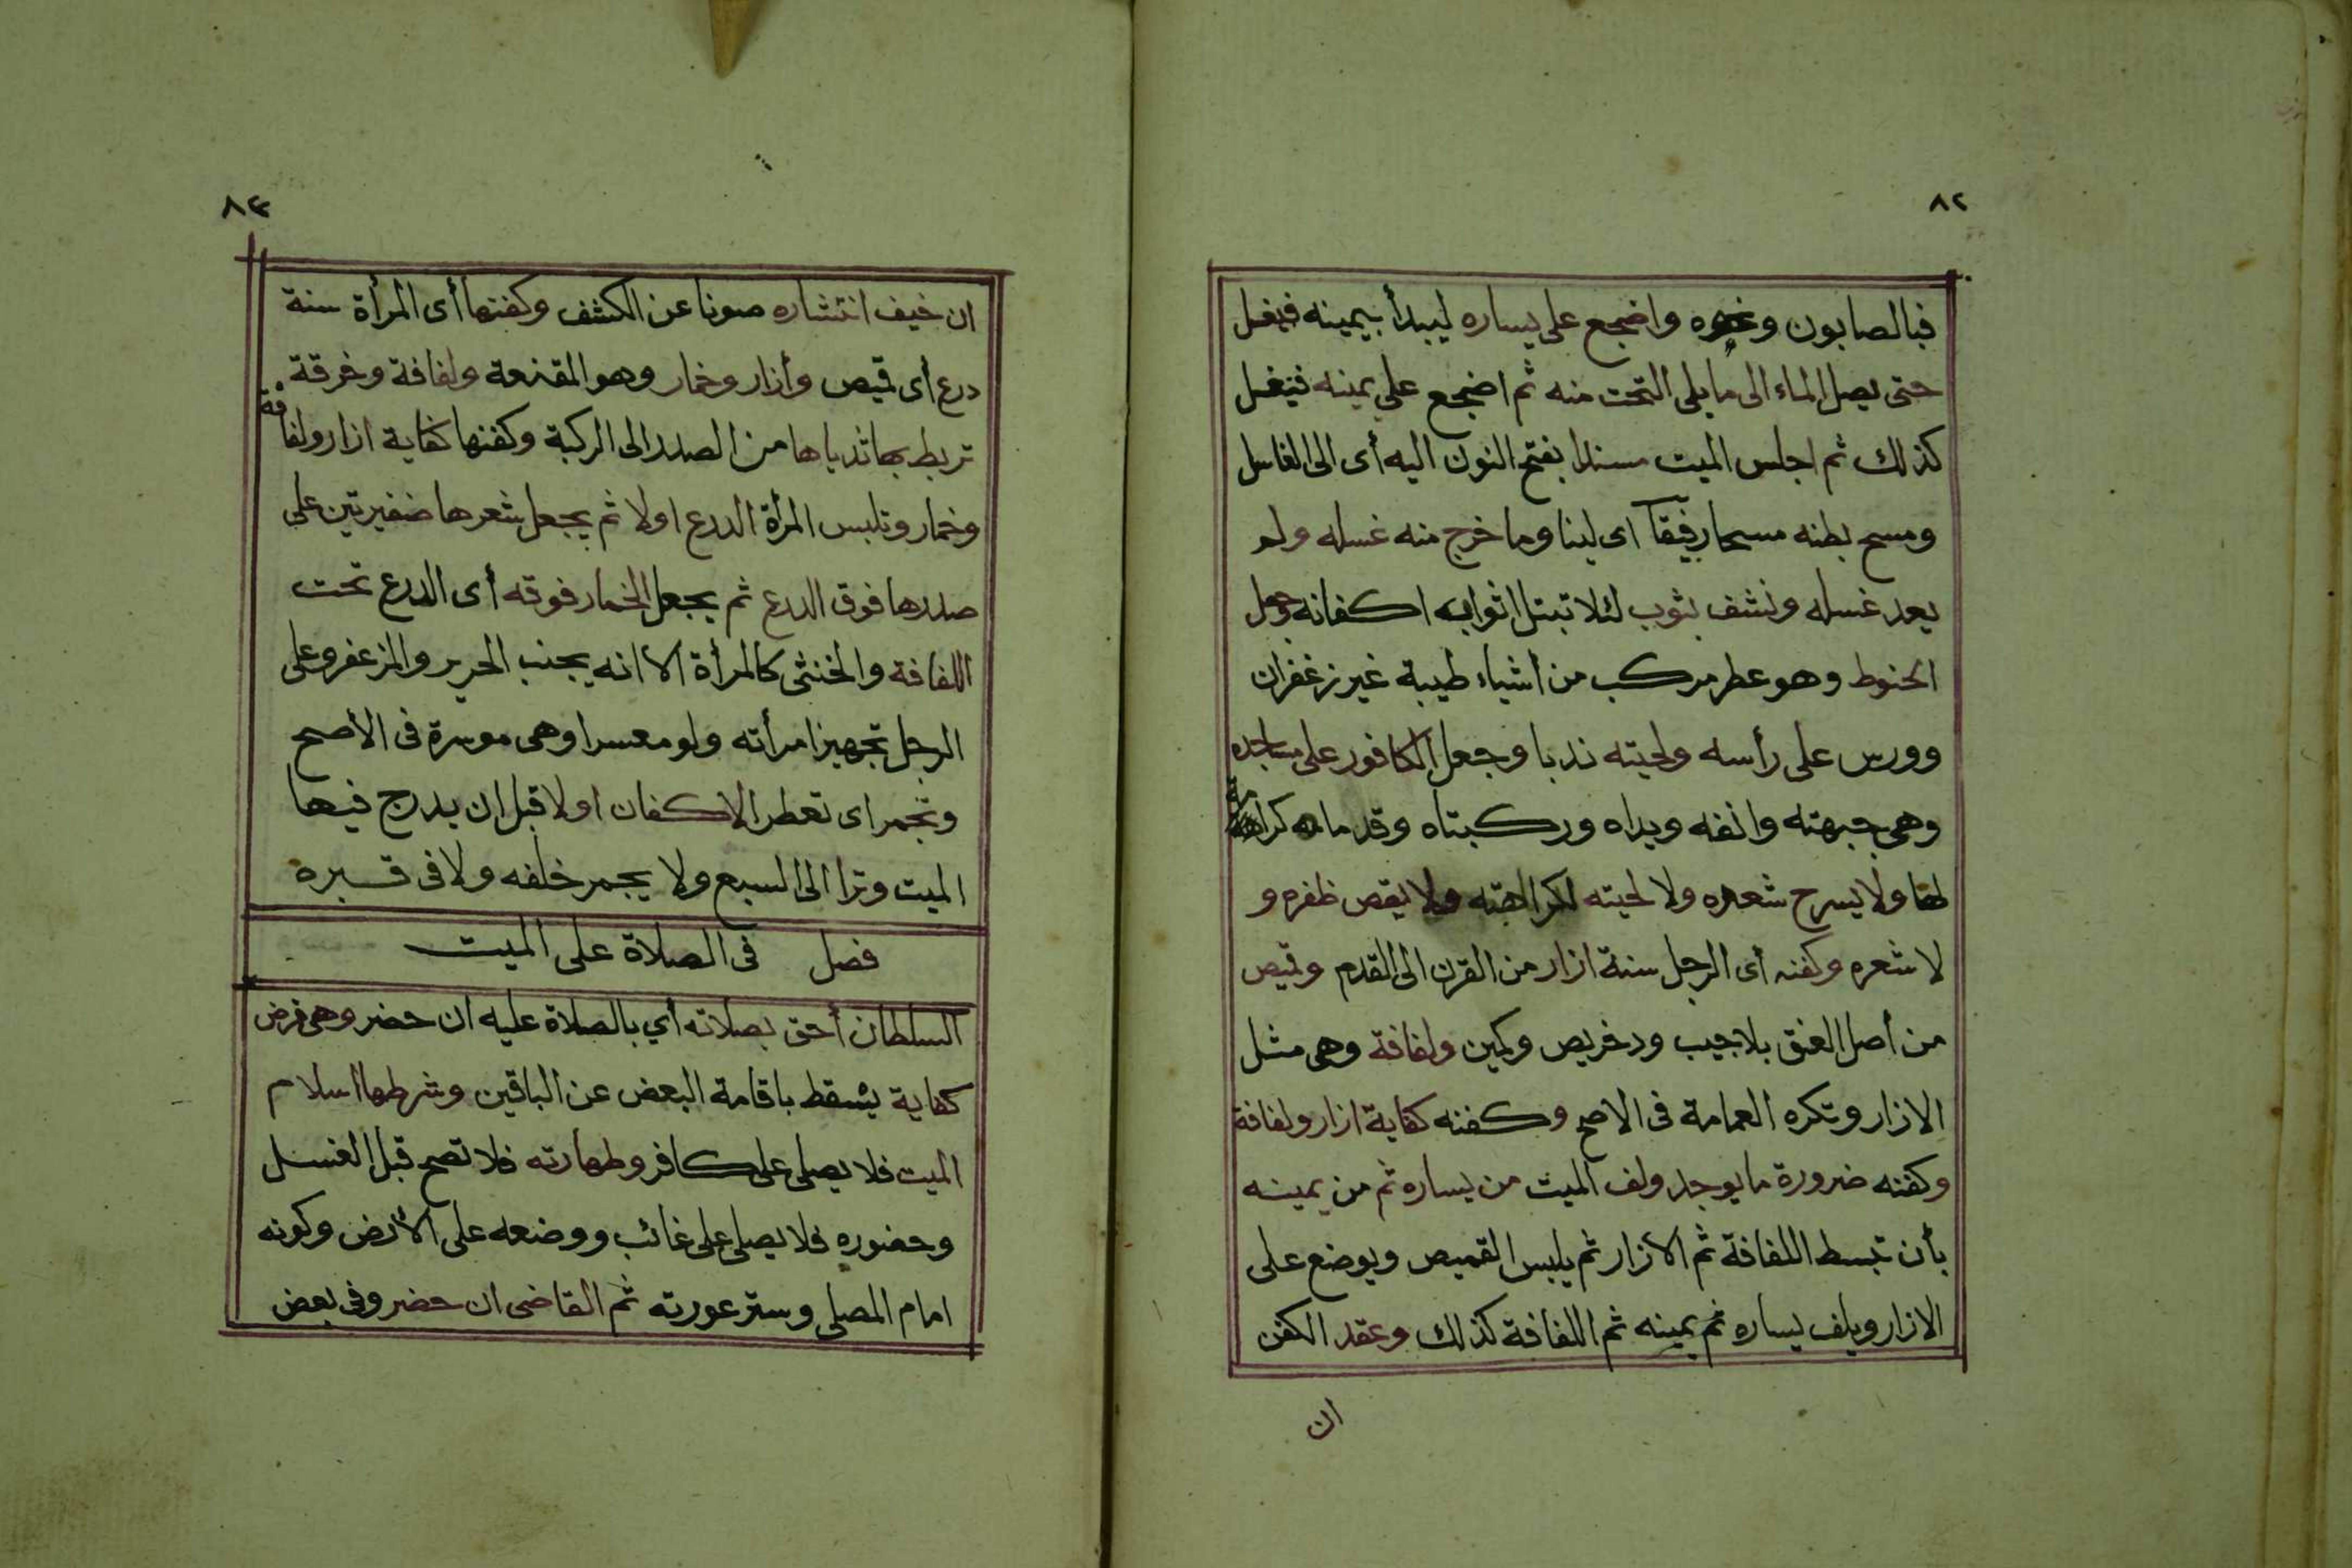 ٨٢
فبالصابون ونحوه واضجع على يساره ليبدأ بيمينه فيغسل
حتى يصل الماء الى مايلى التحت منه ثم اضجع على يمينه فيغسل
كذلك ثم اجلس الميت مسندا بفتح النون اليه أى الى الغاسل
ومسح بطنه مسحا رفيقا اى لينا وما خرج منه غسله ولم
يعد غسله ونشف بثوب لئلا تبتل اثوابه اكفانه وجعل
الحنوط وهو عطر مركب من أشياء طيبة غير زعفران
وورس على رأسه ولحيته ندبا وجعل الكافور على مساجده
وهى جبهته وانفه ويداه وركبتاه وقدماه كرامة
لها ولا يسرح شعره ولا لحيته لكراهته ولا يقص ظفره و
لا شعره وكفنه أى الرجل سنة ازار من القرن الى القدم وقميص
من أصل العنق بلا جيب ودخريص وكمين ولفافة وهى مثل
الازار وتكره العمامة فى الاصح وكفنه كفاية ازار ولفافة
وكفنه ضرورة ما يوجد ولف الميت من يساره ثم من يمينه
بأن تبسط اللفافة ثم الأزار ثم يلبس القميص ويوضع على
الازار ويلف يساره ثم يمينه ثم اللفافة كذلك وعقد الكفن
ان
٨٣
ان خيف انتشاره صونا عن الكشف وكفنها أى المرأة سنة
درع أى قميص وأزار وخمار وهو المقنعة ولفافة وخرقة
تربط بها ثدياها من الصدر الى الركبة وكفنها كفاية ازار ولفافة
وخمار وتلبس المرأة الدرع اولا ثم يجعل شعرها ضفيرتين على
صدرها فوق الدرع ثم يجعل الخمار فوقه أى الدرع تحت
اللفافة والخنثى كالمرأة الا انه يجنب الحرير والمزعفر وعلى
الرجل تجهيز امرأته ولو معسرا وهى موسرة فى الأصح
وتجمر اى تعطر الاكفان اولا قبل ان يدرج فيها
الميت وترا الى السبع ولا يجمر خلفه ولا فى قبره
فصل فى الصلاة على الميت
السلطان أحق بصلاته أي بالصلاة عليه ان حضر وهى فرض
كفاية يسقط باقامة البعض عن الباقين وشرطها اسلام
الميت فلا يصلى على كافر وطهارته فلا تصح قبل الغسل
وحضوره فلا يصلى على غائب ووضعه على الأرض وكونه
امام المصلى وستر عورته ثم القاضى ان حضر وفى بعض